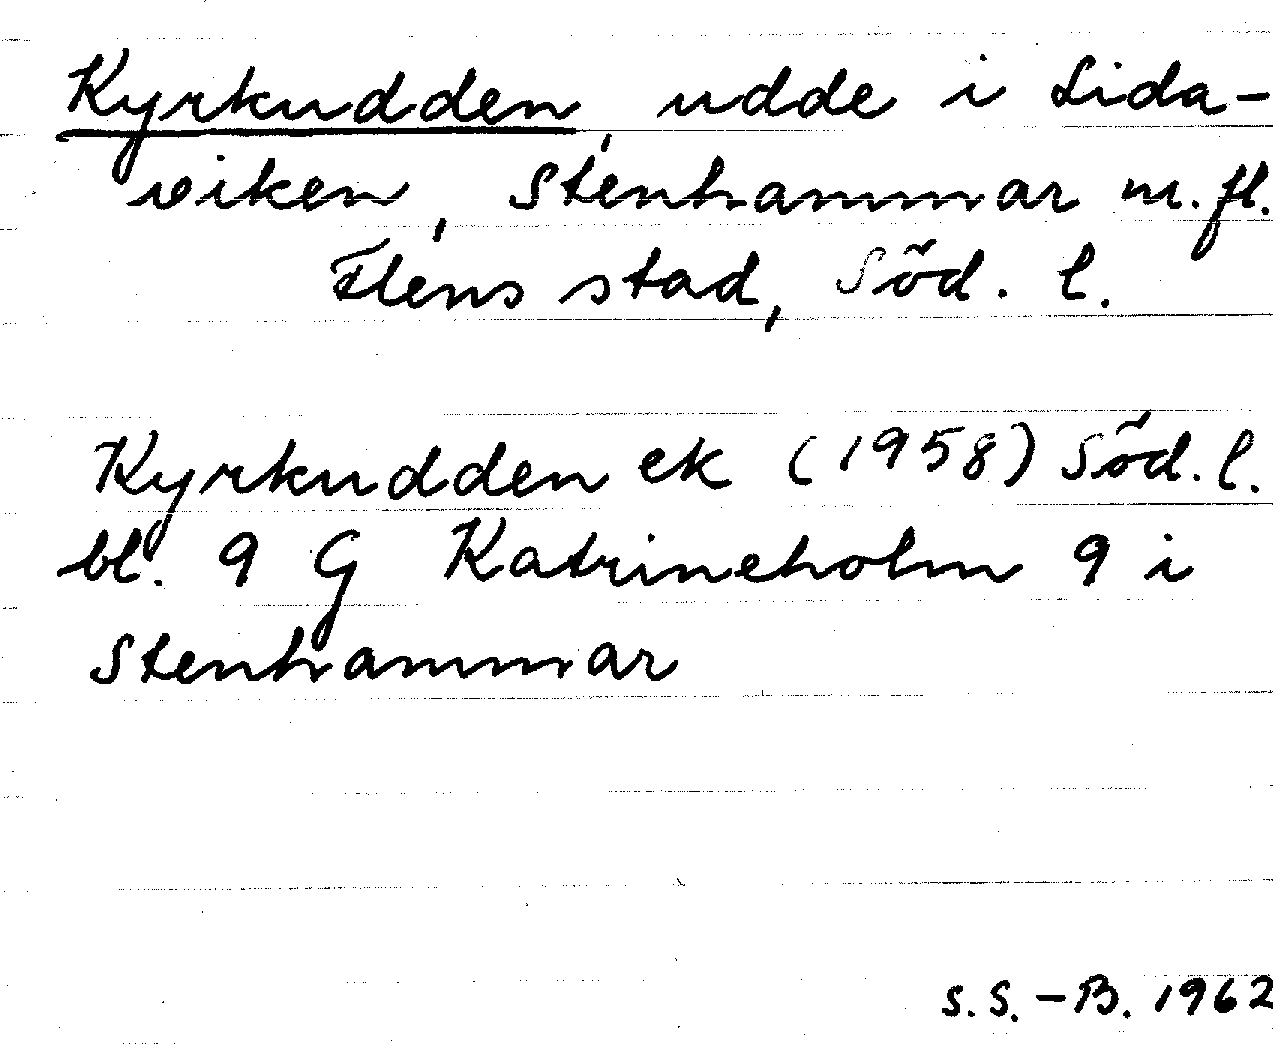 Kyrkudden, udde i Lida-
viken, Stenhammar m.fl.
Flens stad, Söd. l.
Kyrkudden ek (1958) Söd. l.
bl. 9 G Katrineholm 9 i
Stenhammar
S.S.-B. 1962